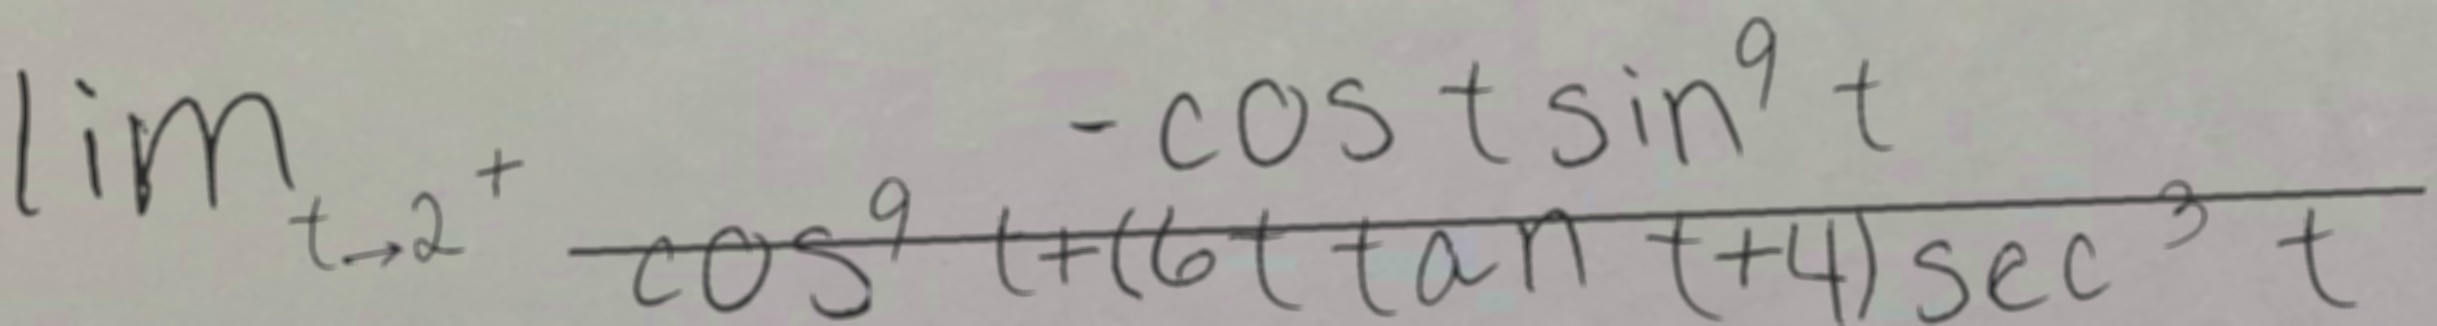 \lim_{t \to 2^+} \frac{-\cos t \sin^9 t}{\cos^9 t + (6t \tan t + 4) \sec^3 t}